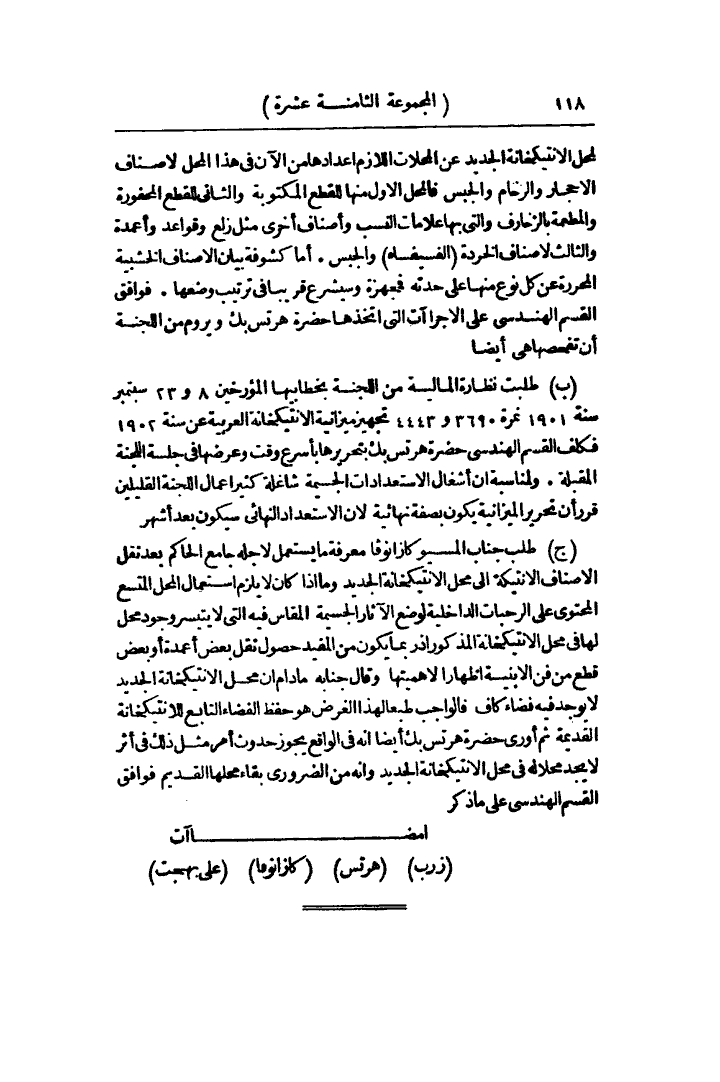 ١١٨ ( المجموعة الثامنـــة عشرة )
لمحل الانتيكخانة الجديد عن المحلات اللازم اعدادها من الآن فى هذا المحل لاصـناف
الاحجار والرخام والجبس فالمحل الاول منها للقطع المكتوبة والثانى للقطع المحفورة
والمطعمة بالزخارف والتى بها علامات النسب وأصناف أخرى مثل زلع وقواعد وأعمدة
والثالث لاصناف الخردة (الفسيفساء) والجبس . أما كشوفة بيان الاصناف الخشبية
المحررة عن كل نوع منها على حدته فجهزة وسيشرع قريبا فى ترتيب وضعها . فوافق
القسم الهندسى على الاجراآت التى اتخذها حضرة هرتس بك ويروم من اللجنة
أن تفحصها هى أيضا
(ب) طلبت نظارة المالية من اللجنة بخطابيها المؤرخين ٨ و ٢٣ سبتمبر
سنة ١٩٠١ نمرة ٣٦٩٠ و ٤٤٤٣ تجهيز ميزانية الانتيكخانة العربية عن سنة ١٩٠٢
فكلف القسم الهندسى حضرة هرتس بك بتحريرها بأسرع وقت وعرضها فى جلسة اللجنة
المقبلة . ولمناسبة ان أشغال الاستعدادات الجسيمة شاغلة كثيرا عمال اللجنة القليلين
قرر أن تحرير الميزانية يكون بصفة نهائية لان الاستعداد النهائى سيكون بعد أشهر
(ج) طلب جناب المسيو كازانوفا معرفة ما يستعمل لاجله جامع الحاكم بعد نقل
الاصناف الانتيكة الى محل الانتيكخانة الجديد وما اذا كان لا يلزم استعمال المحل المتسع
المحتوى على الرحبات الداخلية لوضع الآثار الجسيمة المقاس فيه التى لا يتيسر وجود محل
لها فى محل الانتيكخانة المذكور اذ ربما يكون من المفيد حصول نقل بعض أعمدة أو بعض
قطع من فن الابنية اظهارا لاهميتها وقال جنابه مادام ان محل الانتيكخانة الجديد
لا يوجد فيه فضاء كاف فالواجب طبعا لهذا الغرض هو حفظ الفضاء التابع للانتيكخانة
القديمة ثم أورى حضرة هرتس بك أيضا انه فى الواقع يجوز حدوث أمر مثل ذلك فى أثر
لا يجد محلا له فى محل الانتيكخانة الجديد وانه من الضرورى بقاء محلها القديم فوافق
القسم الهندسى على ما ذكر
امضـــــــــــــاآت
(زرب) (هرتس) (كازانوفا) (على بهجت)